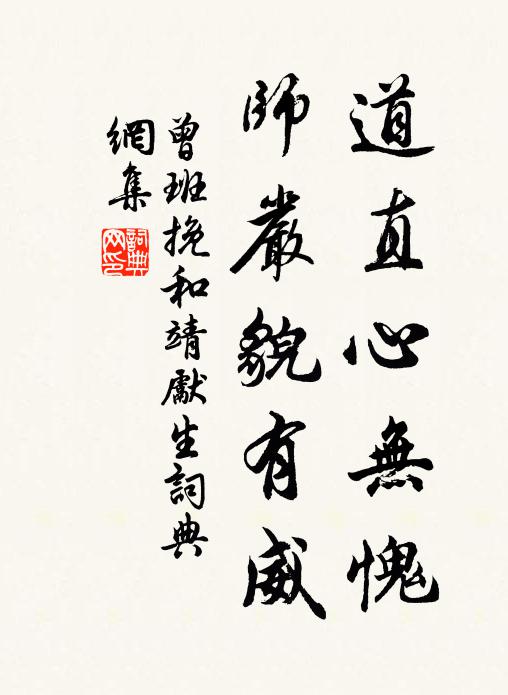 道直心無愧
師嚴貌有威
曾班挽和靖獻生詞典
網集
詞典
網印